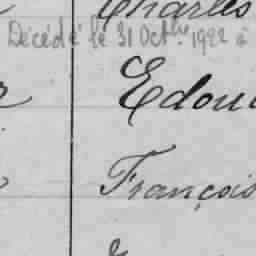 Charles
Décédé le 31 Octbre 1922 à
Edou
François